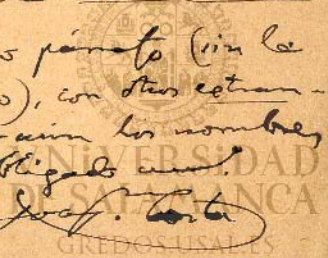 o párrafo (sin la
o), con otros extran-
los nombres
obligado
Joaq. Costa
UNIVERSIDAD
DE SALAMANCA
GREDOS.USAL.ES